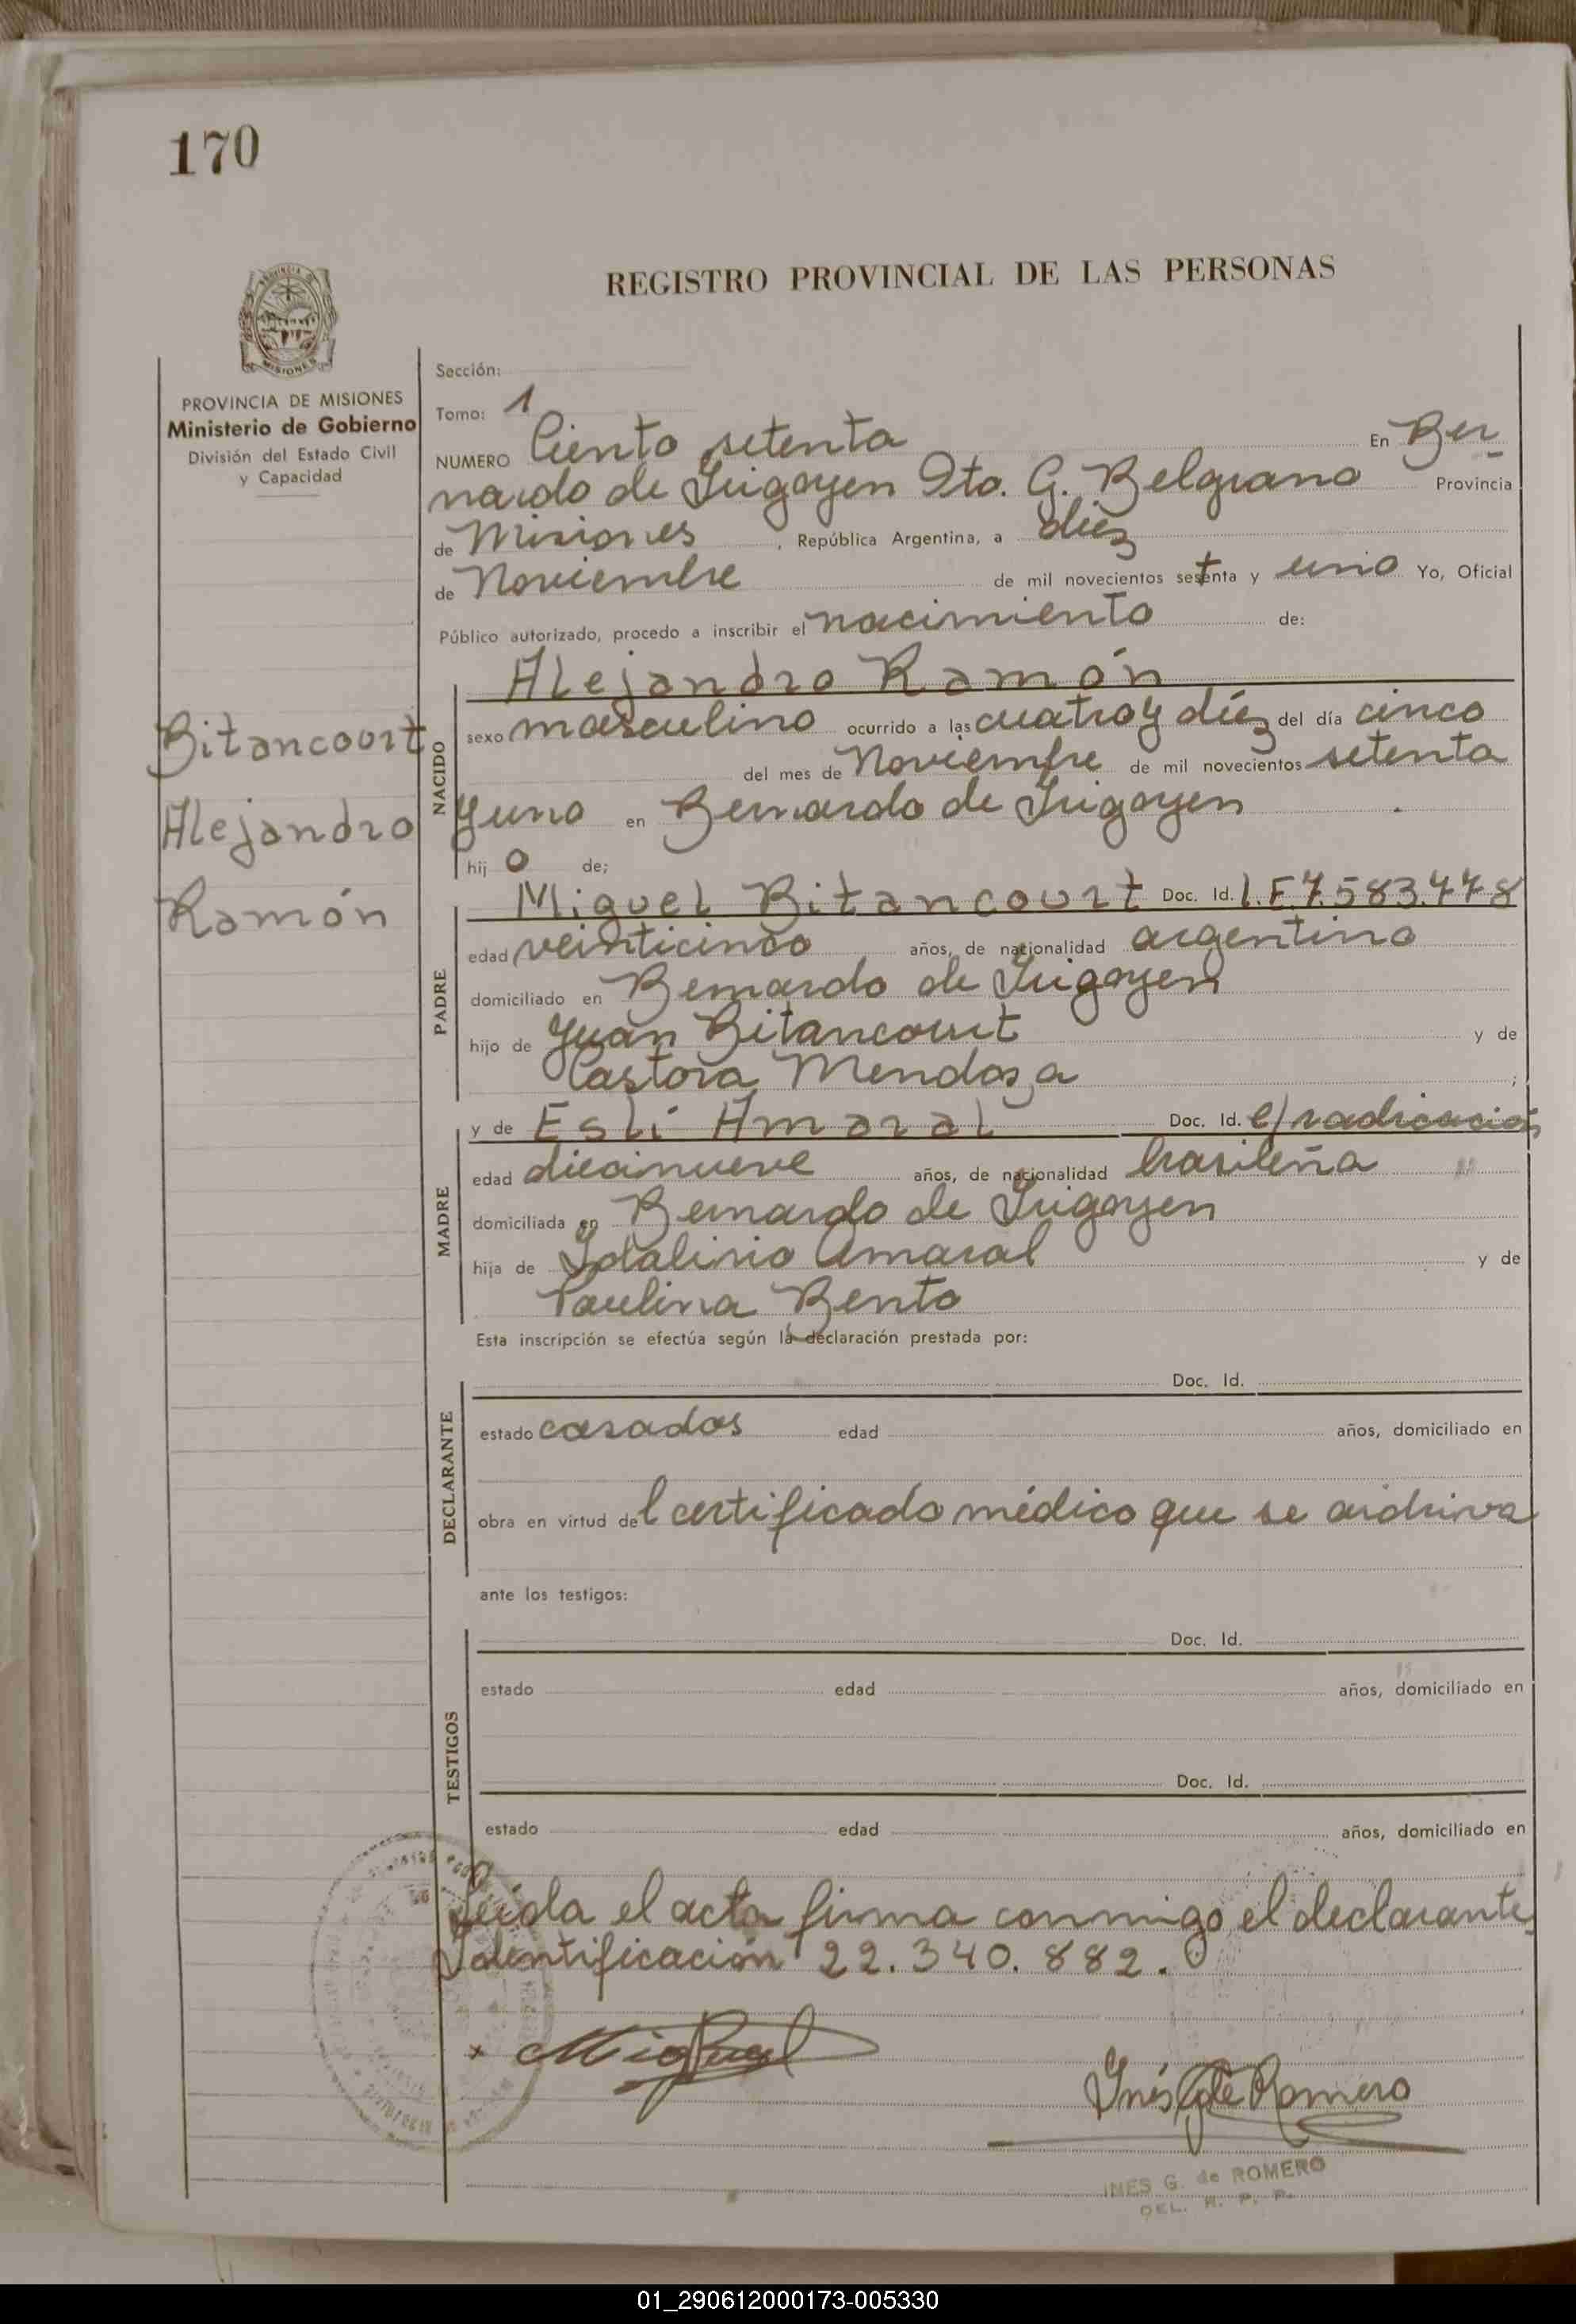 170
REGISTRO PROVINCIAL DE LAS PERSONAS
PROVINCIA DE MISIONES
Ministerio de Gobierno
División del Estado Civil
y Capacidad
Sección:
Tomo: 1
NUMERO Ciento setenta En Ber
nardo de Irigoyen Dto. G. Belgrano Provincia
de Misiones, República Argentina, a diez
de Noviembre de mil novecientos setenta y uno Yo, Oficial
Público autorizado, procedo a inscribir el nacimiento de:
Alejandro Ramón
Bitancourt
Alejandro
Ramón
NACIDO
sexo masculino ocurrido a las cuatro y diéz del día cinco
del mes de Noviembre de mil novecientos setenta
y uno en Bernardo de Irigoyen
hij o de;
PADRE
Miguel Bitancourt Doc. Id. L.E 7.583.448
edad veinticinco años, de nacionalidad argentino
domiciliado en Bernardo de Irigoyen
hijo de Juan Bitancourt y de
Castora Mendoza ;
MADRE
y de Eslí Amaral Doc. Id. c/radicación
edad diecinueve años, de nacionalidad brasileña
domiciliada en Bernardo de Irigoyen
hija de Idalinio Amaral y de
Paulina Bento
Esta inscripción se efectúa según la declaración prestada por:
DECLARANTE
Doc. Id.
estado casados edad años, domiciliado en
obra en virtud del certificado médico que se archiva
ante los testigos:
TESTIGOS
Doc. Id.
estado edad años, domiciliado en
Doc. Id.
estado edad años, domiciliado en
Leída el acta firma conmigo el declarante
Identificación 22.340.882.
x Miguel
Inés G de Romero
INES G. de ROMERO
DEL. R. P. P.
01_290612000173-005330